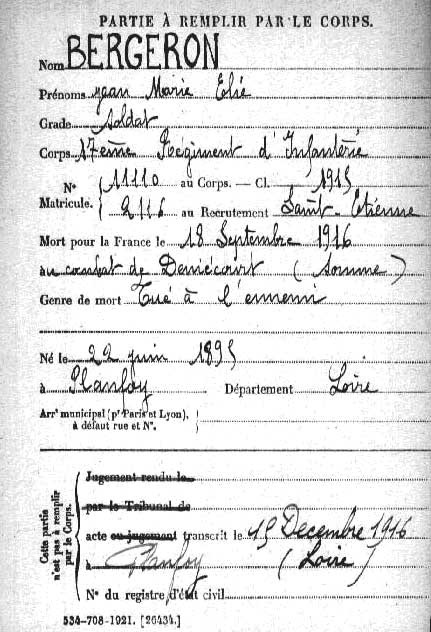 PARTIE À REMPLIR PAR LE CORPS.
Nom BERGERON
Prénoms Jean Marie Elie
Grade Soldat
Corps 17eme Régiment d'Infanterie
N° Matricule. { 11110 au Corps. — Cl. 1915
2116 au Recrutement Saint-Etienne
Mort pour la France le 18 Septembre 1916
à au combat de Deniécourt (Somme)
Genre de mort Tué à l'ennemi
Né le 22 juin 1895
à Planfoy Département Loire
Arr^t municipal (p^r Paris et Lyon), à défaut rue et N°.
Cette partie n'est pas à remplir par le Corps.
Jugement rendu le
par le Tribunal de
acte ou jugement transcrit le 15 Decembre 1916
à Planfoy (Loire)
N° du registre d'état civil
534-708-1921. [26434.]